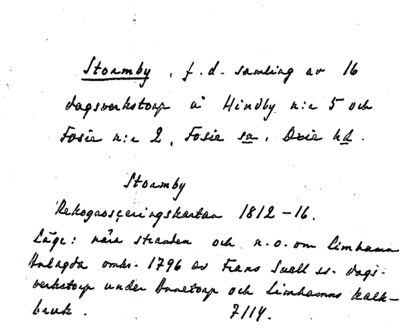 Stormby, f.d. samling av 16
dagsverkstorp å Hindby n:r 5 och
Fosie n:r 2, Fosie sn, Oxie hd.
Stormby
Rekognosceringskartan 1812-16.
Läge: nära stranden och n.o. om Limhamn
Anlagda omkr. 1796 av Frans Suell ss. dags-
verkstorp under Annetorp och Limhamns kalk-
bruk. 7/14.